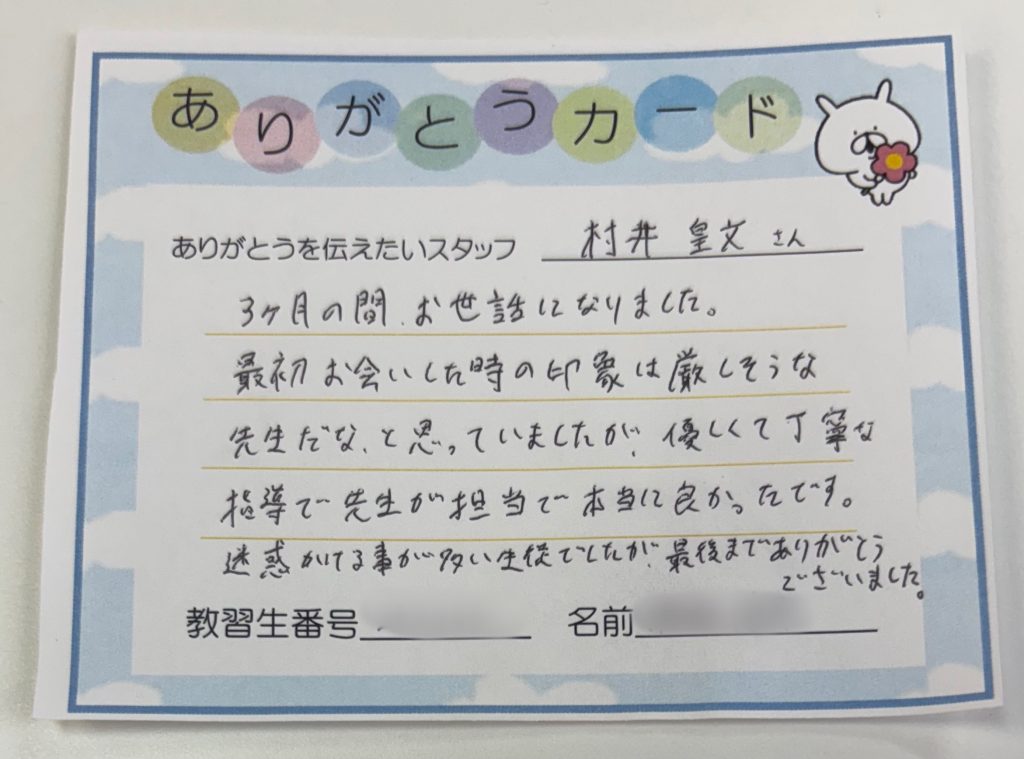 ありがとうカード
ありがとうを伝えたいスタッフ 村井 皇文 さん
3ヶ月の間、お世話になりました。
最初お会いした時の印象は厳しそうな
先生だな、と思っていましたが、優しくて丁寧な
指導で先生が担当で本当に良かったです。
迷惑かける事が多い生徒でしたが、最後までありがとう
ございました。
教習生番号 名前